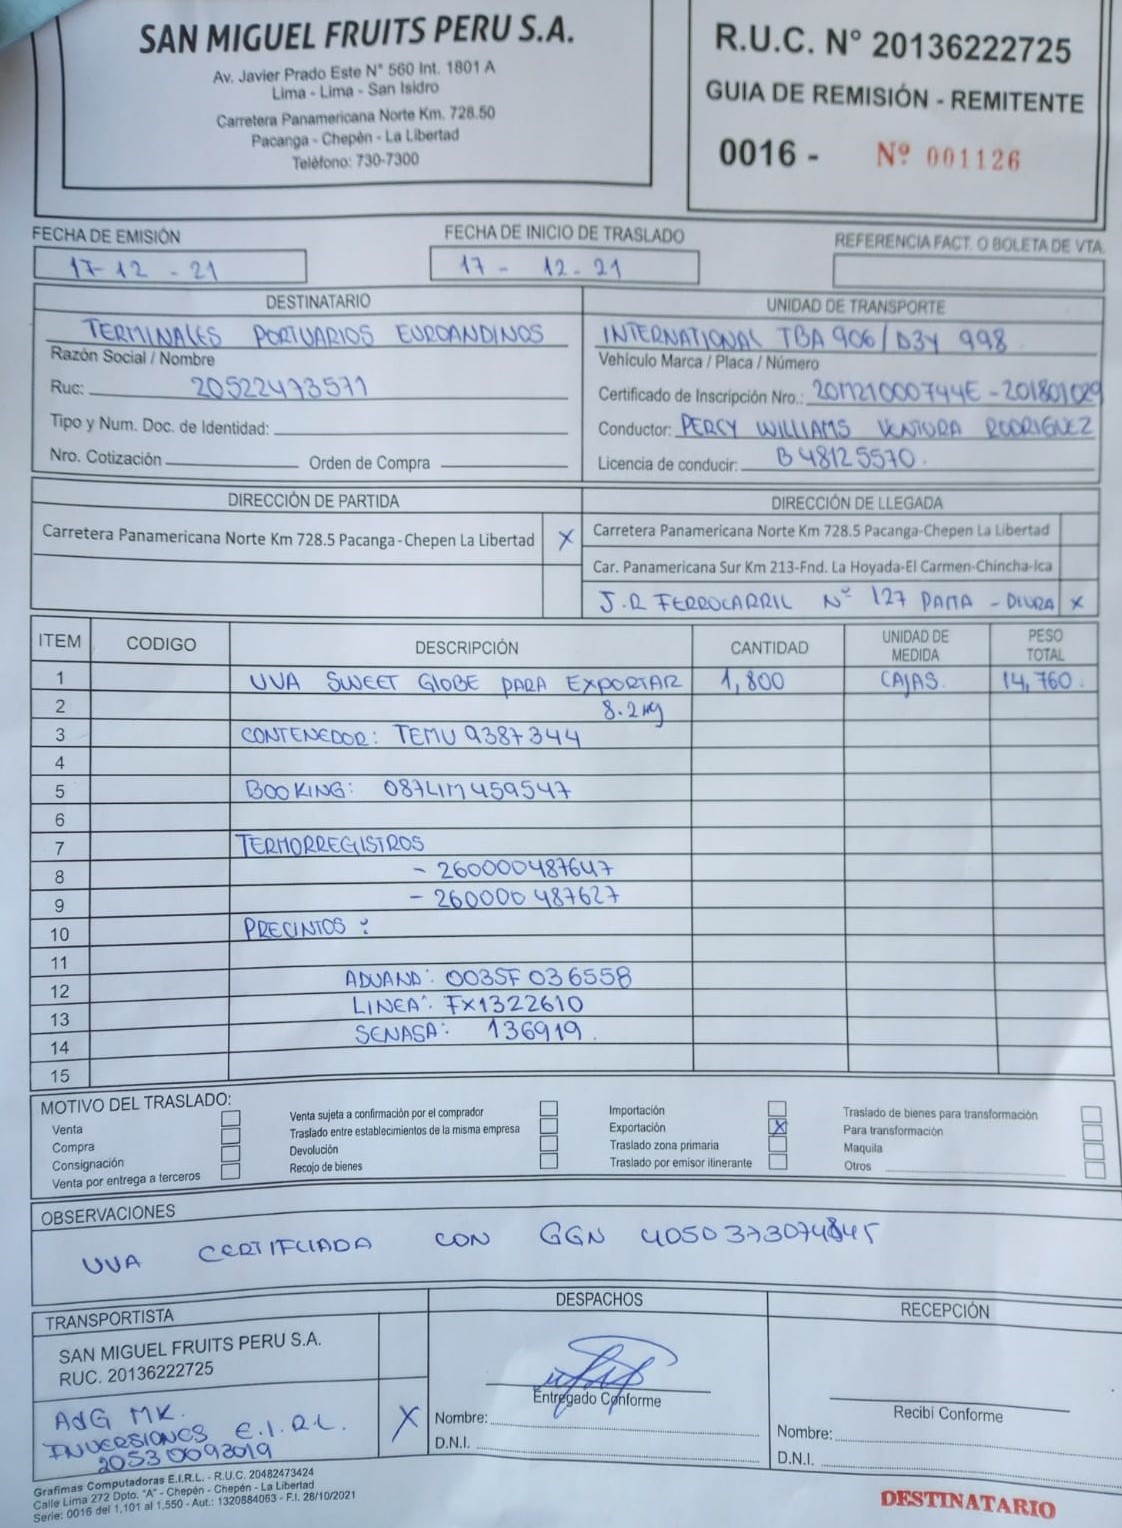 SAN MIGUEL FRUITS PERU S.A.
Av. Javier Prado Este N° 560 Int. 1801 A
Lima - Lima - San Isidro
Carretera Panamericana Norte Km. 728.50
Pacanga - Chepén - La Libertad
Teléfono: 730-7300
R.U.C. N° 20136222725
GUIA DE REMISIÓN - REMITENTE
0016 - Nº 001126
FECHA DE EMISIÓN
17-12-21
FECHA DE INICIO DE TRASLADO
17-12-21
REFERENCIA FACT. O BOLETA DE VTA.
DESTINATARIO
TERMINALES PORTUARIOS EUROANDINOS
Razón Social / Nombre
Ruc: 20522473571
Tipo y Num. Doc. de Identidad:
Nro. Cotización Orden de Compra
UNIDAD DE TRANSPORTE
INTERNATIONAL TBA 906/D3Y 998
Vehículo Marca / Placa / Número
Certificado de Inscripción Nro.: 201721000744E - 201801029
Conductor: PERCY WILLIAMS VENTURA RODRIGUEZ
Licencia de conducir: B48125570.
DIRECCIÓN DE PARTIDA
Carretera Panamericana Norte Km 728.5 Pacanga - Chepen La Libertad X
DIRECCIÓN DE LLEGADA
Carretera Panamericana Norte Km 728.5 Pacanga-Chepen La Libertad
Car. Panamericana Sur Km 213-Fnd. La Hoyada-El Carmen-Chincha-Ica
J.R FERROCARRIL Nº 127 PAITA - PIURA X
ITEM CODIGO DESCRIPCIÓN CANTIDAD UNIDAD DE MEDIDA PESO TOTAL
1 UVA SWEET GLOBE PARA EXPORTAR 1,800 CAJAS. 14,760.
2 8.2 Kg
3 CONTENEDOR: TEMU 9387344
4
5 BOOKING: 087LIM459547
6
7 TERMORREGISTROS
8 - 260000487647
9 - 260000487627
10 PRECINTOS:
11
12 ADUANA: 003SF036558
13 LINEA: FX1322610
14 SENASA: 136919.
15
MOTIVO DEL TRASLADO:
Venta
Compra
Consignación
Venta por entrega a terceros
Venta sujeta a confirmación por el comprador
Traslado entre establecimientos de la misma empresa
Devolución
Recojo de bienes
Importación
Exportación X
Traslado zona primaria
Traslado por emisor itinerante
Traslado de bienes para transformación
Para transformación
Maquila
Otros
OBSERVACIONES
UVA CERTIFICADA CON GGN 4050373074845
TRANSPORTISTA
SAN MIGUEL FRUITS PERU S.A.
RUC. 20136222725
AdG MK.
INVERSIONES E.I.R.L. X
20530093019
DESPACHOS
Entregado Conforme
Nombre:
D.N.I.
RECEPCIÓN
Recibi Conforme
Nombre:
D.N.I.
Grafimas Computadoras E.I.R.L. - R.U.C. 20482473424
Calle Lima 272 Dpto. "A" - Chepén - Chepén - La Libertad
Serie: 0016 del 1,101 al 1,550 - Aut.: 1320884063 - F.I. 28/10/2021
DESTINATARIO